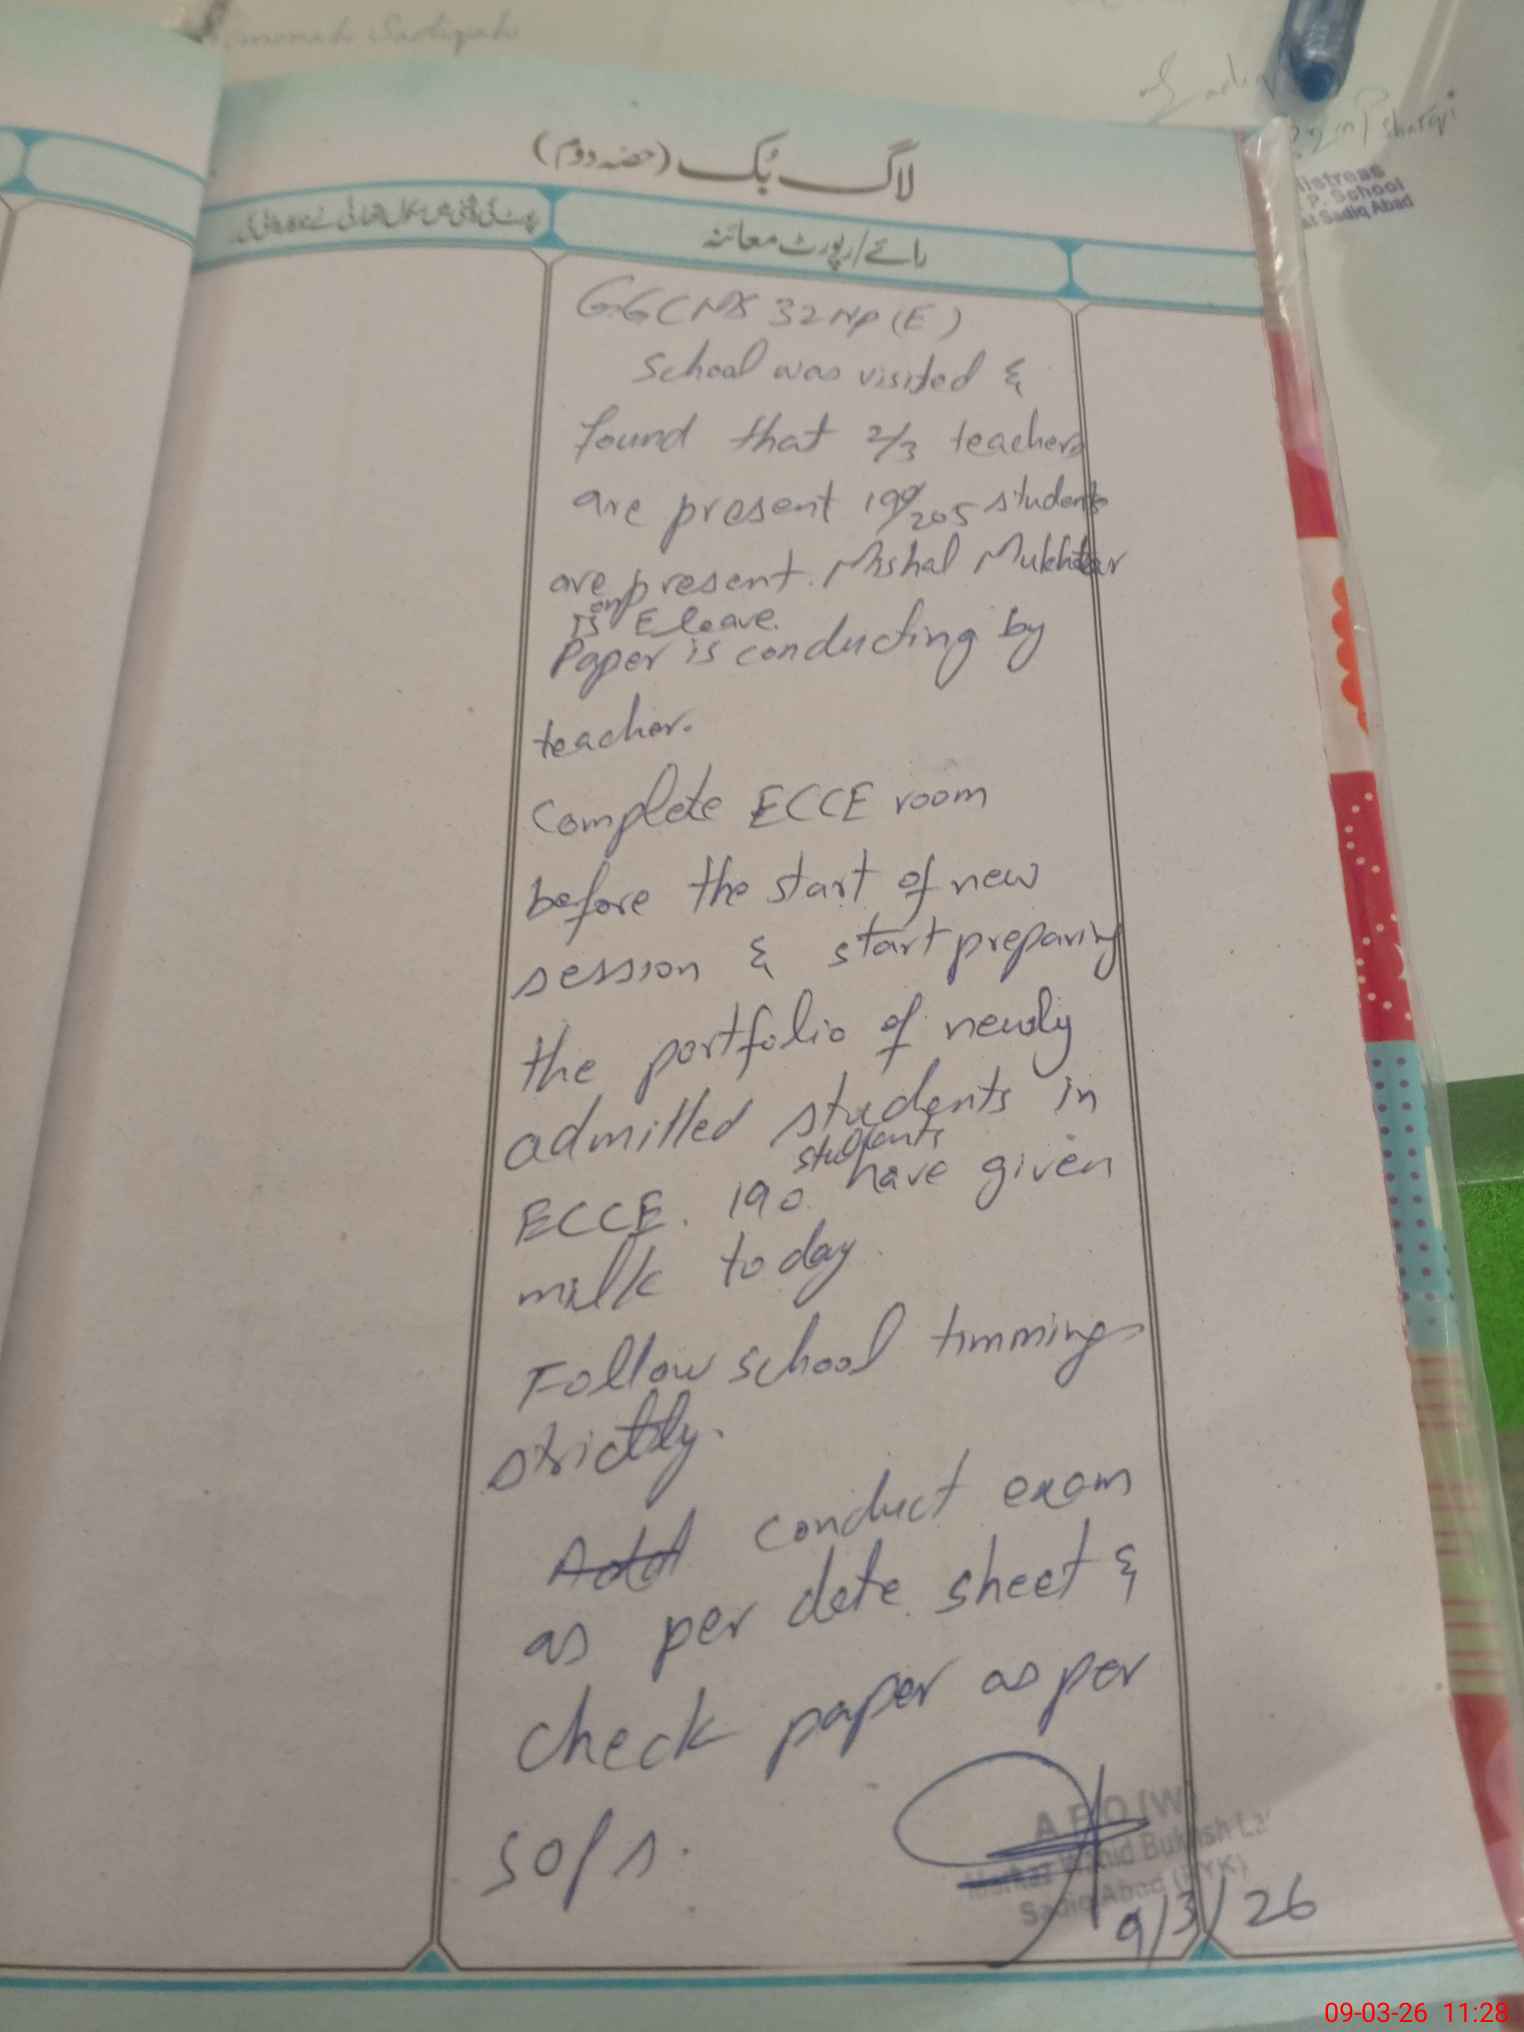 لاگ بک (حصہ دوم)
رائے/رپورٹ معائنہ
32 NP (E)
School was visited &
found that 2/3 teachers
are present 199/205 students
are present. Mishal Mukhtar
is on E leave.
Paper is conducting by
teacher.
Complete ECCE room
before the start of new
session & start preparing
the portfolio of newly
admitted students in
students
ECCE. 190 have given
milk today.
Follow school timmings
strictly.
conduct exam
as per date sheet &
check paper as per
SOPs.
A E O (W)
Sadiq Abad (RYK)
9/3/26
P. School
Sadiq Abad
09-03-26 11:28